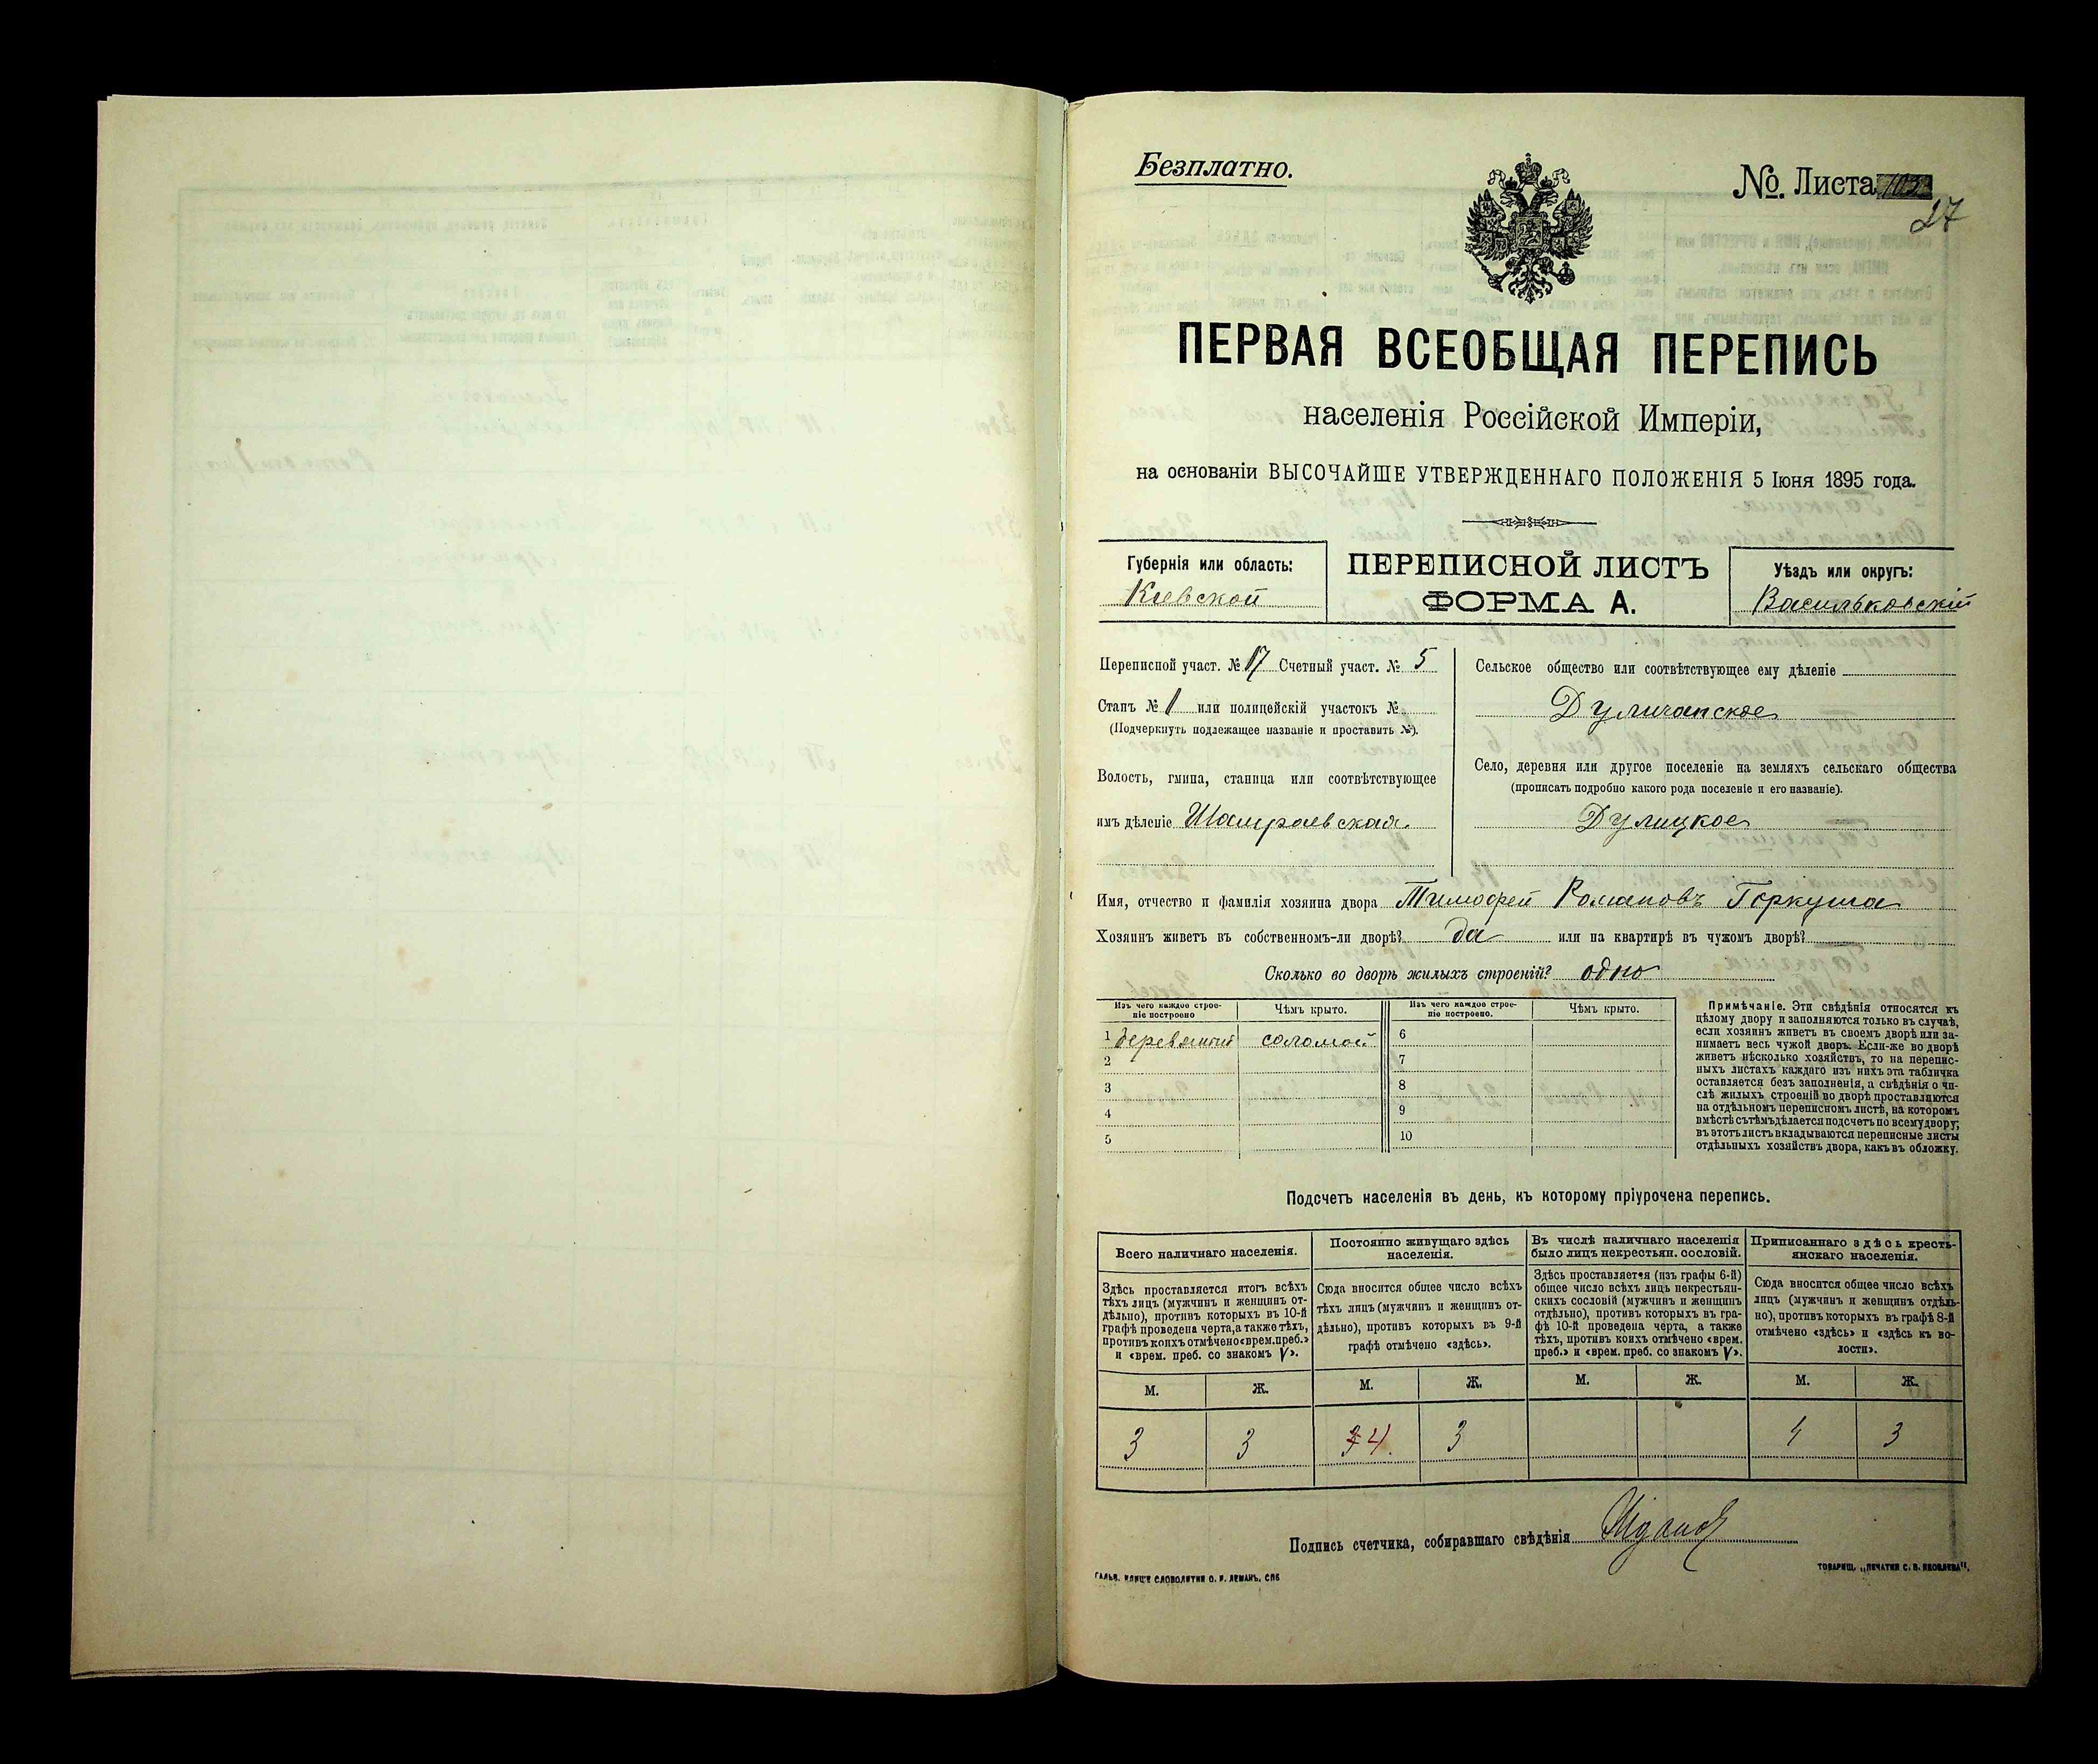 Безплатно.
№. Листа 103
27
ПЕРВАЯ ВСЕОБЩАЯ ПЕРЕПИСЬ
населенія Россійской Имперіи,
на основаніи ВЫСОЧАЙШЕ УТВЕРЖДЕННАГО ПОЛОЖЕНІЯ 5 Іюня 1895 года.
Губернія или область:
Кіевской
ПЕРЕПИСНОЙ ЛИСТЪ
ФОРМА А.
Уѣздъ или округъ:
Васильковскій
Переписной участ. № 17 Счетный участ. № 5
Станъ № 1 или полицейскій участокъ №
(Подчеркнуть подлежащее названіе и проставить №).
Волость, гмина, станица или соотвѣтствующее
имъ дѣленіе Шамраевская
Сельское общество или соотвѣтствующее ему дѣленіе
Дуличанское
Село, деревня или другое поселеніе на земляхъ сельскаго общества
(прописать подробно какого рода поселеніе и его названіе).
Дулицкое
Имя, отчество и фамилія хозяина двора Тимофей Романовъ Горкуша
Хозяинъ живетъ въ собственномъ-ли дворѣ? да или на квартирѣ въ чужомъ дворѣ?
Сколько во дворѣ жилыхъ строеній? одно
Изъ чего каждое строе-
ніе построено
Чѣмъ крыто.
Изъ чего каждое строе-
ніе построено.
Чѣмъ крыто.
1 соломой
2
3
4
5
6
7
8
9
10
Примѣчаніе. Эти свѣдѣнія относятся къ
цѣлому двору и заполняются только въ случаѣ,
если хозяинъ живетъ въ своемъ дворѣ или за-
нимаетъ весь чужой дворъ. Если-же во дворѣ
живетъ нѣсколько хозяйствъ, то на перепис-
ныхъ листахъ каждаго изъ нихъ эта табличка
оставляется безъ заполненія, а свѣдѣнія о чи-
слѣ жилыхъ строеній во дворѣ проставляются
на отдѣльномъ переписномъ листѣ, на которомъ
вмѣстѣ съ тѣмъ дѣлается подсчетъ по всему двору;
въ этотъ листъ вкладываются переписные листы
отдѣльныхъ хозяйствъ двора, какъ въ обложку.
Подсчетъ населенія въ день, къ которому пріурочена перепись.
Всего наличнаго населенія.
Здѣсь проставляется итогъ всѣхъ
тѣхъ лицъ (мужчинъ и женщинъ от-
дѣльно), противъ которыхъ въ 10-й
графѣ проведена черта, а также тѣхъ,
противъ коихъ отмѣчено «врем. преб.»
и «врем. преб. со знакомъ V».
Постоянно живущаго здѣсь
населенія.
Сюда вносится общее число всѣхъ
тѣхъ лицъ (мужчинъ и женщинъ от-
дѣльно), противъ которыхъ въ 9-й
графѣ отмѣчено «здѣсь».
Въ числѣ наличнаго населенія
было лицъ некрестьян. сословій.
Здѣсь проставляется (изъ графы 6-й)
общее число всѣхъ лицъ некрестьян-
скихъ сословій (мужчинъ и женщинъ
отдѣльно), противъ которыхъ въ гра-
фѣ 10-й проведена черта, а также
тѣхъ, противъ коихъ отмѣчено «врем.
преб.» и «врем. преб. со знакомъ V».
Приписаннаго здѣсь кресть-
янскаго населенія.
Сюда вносится общее число всѣхъ
лицъ (мужчинъ и женщинъ отдѣль-
но), противъ которыхъ въ графѣ 8-й
отмѣчено «здѣсь» и «здѣсь къ во-
лости».
М. Ж. М. Ж. М. Ж. М. Ж.
3 3 3 4. 3 4 3
Подпись счетчика, собиравшаго свѣдѣнія
ГАЛЬВ. КЛИШЕ СЛОВОЛИТНИ О. И. ЛЕМАНЪ, СПБ
ТОВАРИЩ. „ПЕЧАТНЯ С. П. ЯКОВЛЕВА“.